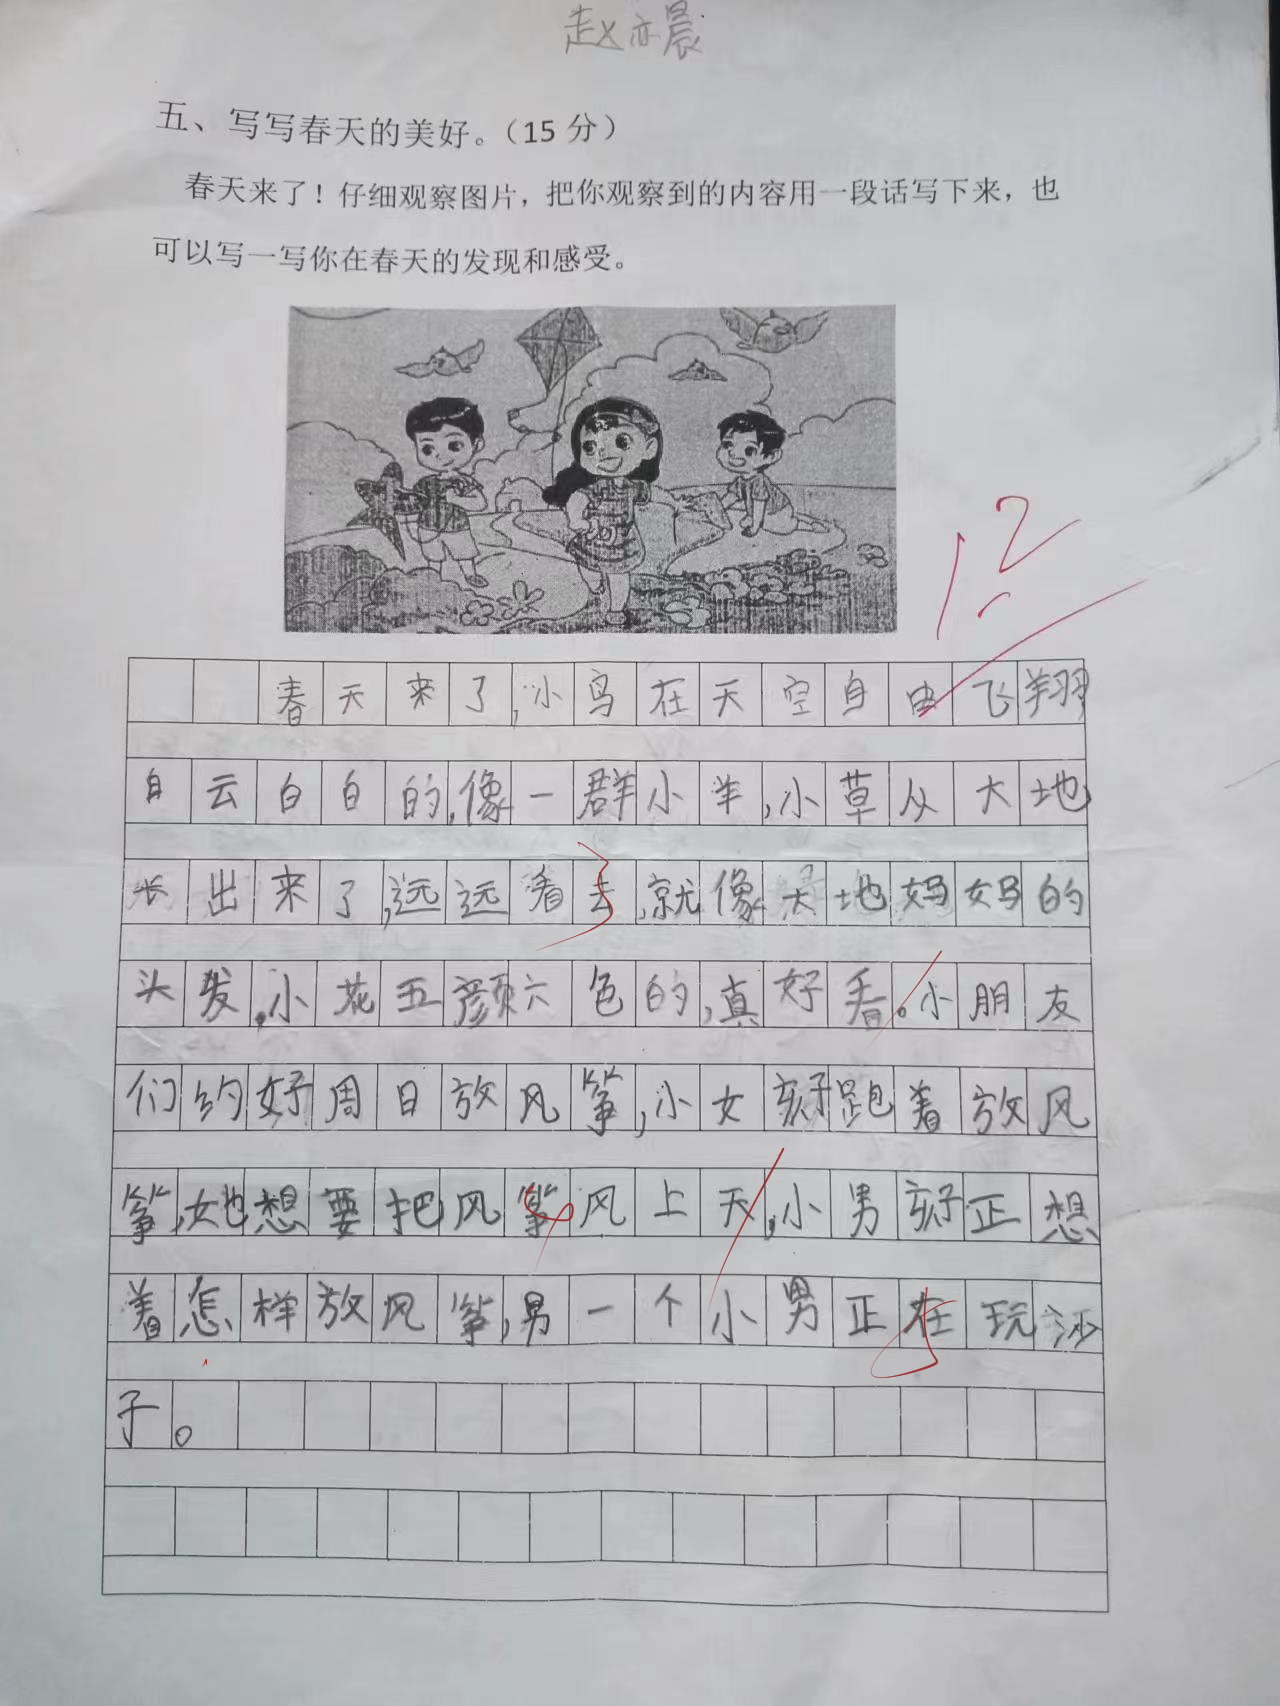 赵亦晨
五、写写春天的美好。（15 分）
春天来了！仔细观察图片，把你观察到的内容用一段话写下来，也
可以写一写你在春天的发现和感受。
12
春天来了,小鸟在天空自由飞翔
白云白白的,像一群小羊,小草从大地
长出来了,远远看去,就像大地妈妈的
头发,小花五颜六色的,真好看。小朋友
们约好周日放风筝,小女孩跑着放风
筝,她想要把风筝风上天,小男孩正想
着怎样放风筝,另一个小男正在玩沙
子。